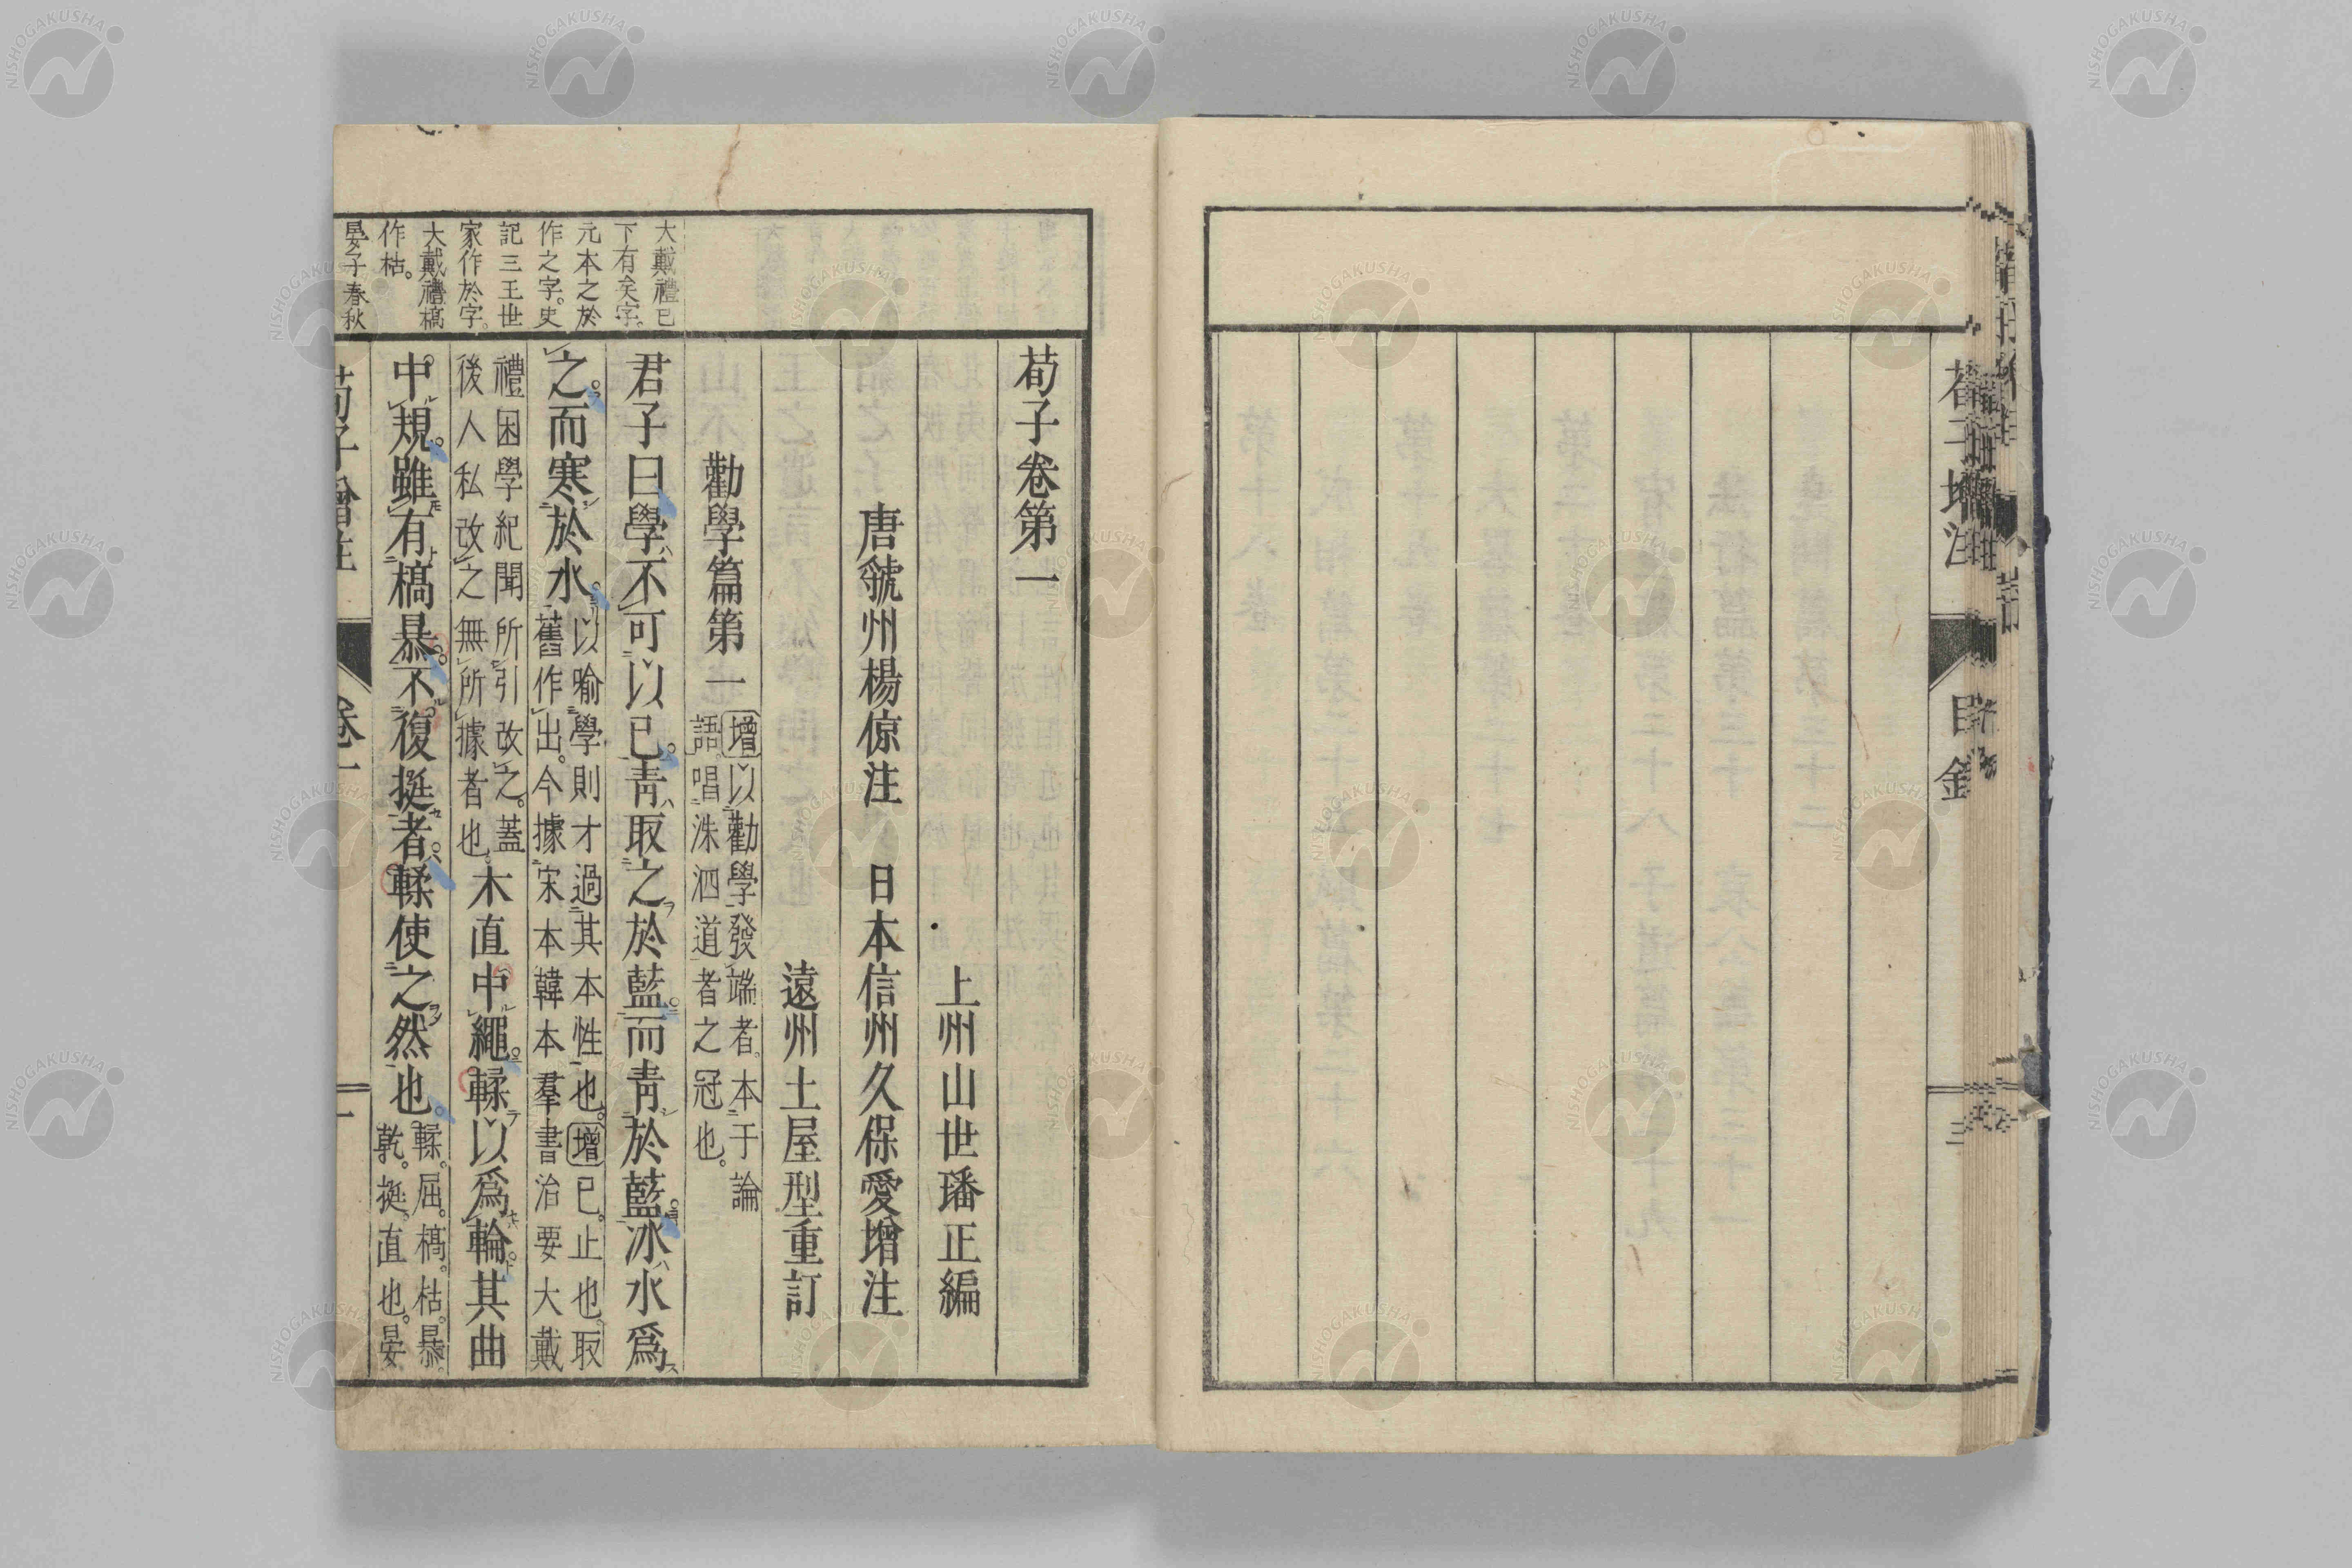 荀子增注
目錄
三
荀子卷第一
上州山世璠正編
唐虢州楊倞注　日本信州久保愛增注
遠州土屋型重訂
勸學篇第一
增以勸學發端者本于論
語唱洙泗道者之冠也。
君子曰學不可以已。青取之於藍而青於藍冰水爲
之而寒於水
以喻學則才過其本性也。增已。止也。取
舊作出。今據宋本韓本羣書治要大戴
禮困學紀聞所引改之。蓋
後人私改之無所據者也。
木直中繩輮以爲輪其曲
中規。雖有槁暴不復挺者輮使之然也。
輮。屈。槁。枯。暴。
乾。挺。直也。晏
大戴禮已
下有矣字。
元本之於
作之字。史
記三王世
家作於字。
大戴禮槁
作枯。
晏子春秋
荀子增注
卷一
一
NISHOGAKUSHA